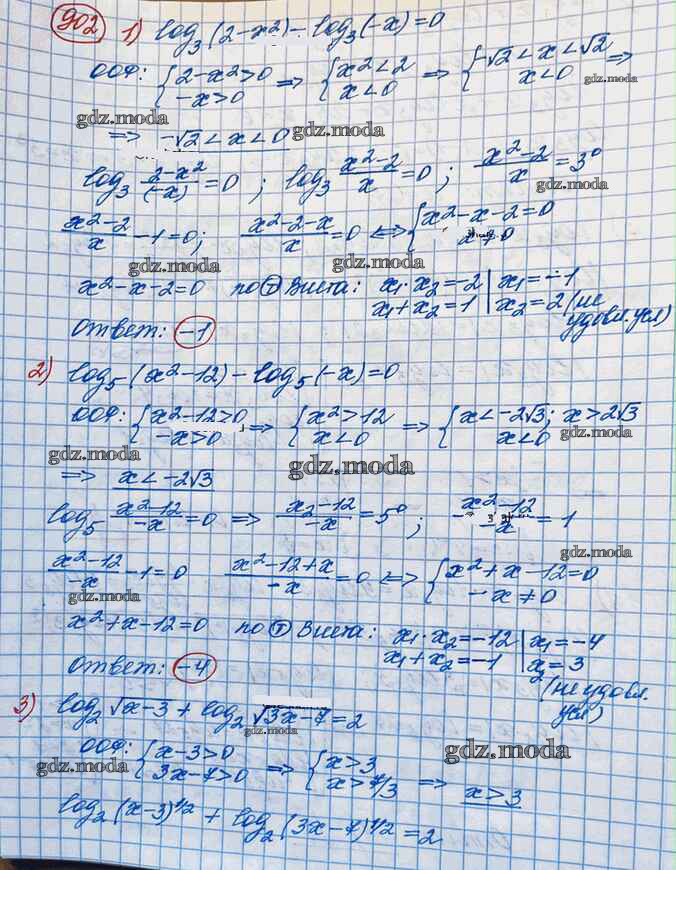 902 1) log₃(2-x²) - log₃(-x)=0
ООФ: {2-x²>0 -x>0 ⇒ {x²<2 x<0 ⇒ {-√2<x<√2 x<0 ⇒
gdz.moda
gdz.moda gdz.moda
⇒ -√2<x<0
log₃ (2-x²)/(-x) = 0 ; log₃ (x²-2)/x = 0 ; (x²-2)/x = 3⁰
gdz.moda
(x²-2)/x - 1=0; (x²-2-x)/x = 0 ⇔ {x²-x-2=0 x≠0
gdz.moda gdz.moda
x²-x-2=0 по Т Виета: x₁·x₂=-2 x₁+x₂=1 | x₁=-1 x₂=2 (не удовл. усл)
gdz.moda
Ответ: -1
2) log₅(x²-12) - log₅(-x)=0
ООФ: {x²-12>0 -x>0 ⇒ {x²>12 x<0 ⇒ {x<-2√3; x>2√3 x<0
gdz.moda gdz.moda
gdz.moda
⇒ x<-2√3
log₅ (x²-12)/(-x) = 0 ⇒ (x₂-12)/(-x) = 5⁰ ; (x²-12)/(-x) = 1
gdz.moda
(x²-12)/(-x) - 1=0 (x²-12+x)/(-x) = 0 ⇔ {x²+x-12=0 -x≠0
gdz.moda
x²+x-12=0 по Т Виета: x₁·x₂=-12 x₁+x₂=-1 | x₁=-4 x₂=3 (не удовл. усл)
Ответ: -4
3) log₂√x-3 + log₂√3x-7=2
gdz.moda
ООФ: {x-3>0 3x-7>0 ⇒ {x>3 x>7/3 ⇒ x>3
gdz.moda gdz.moda
log₂(x-3)^1/2 + log₂(3x-7)^1/2 = 2